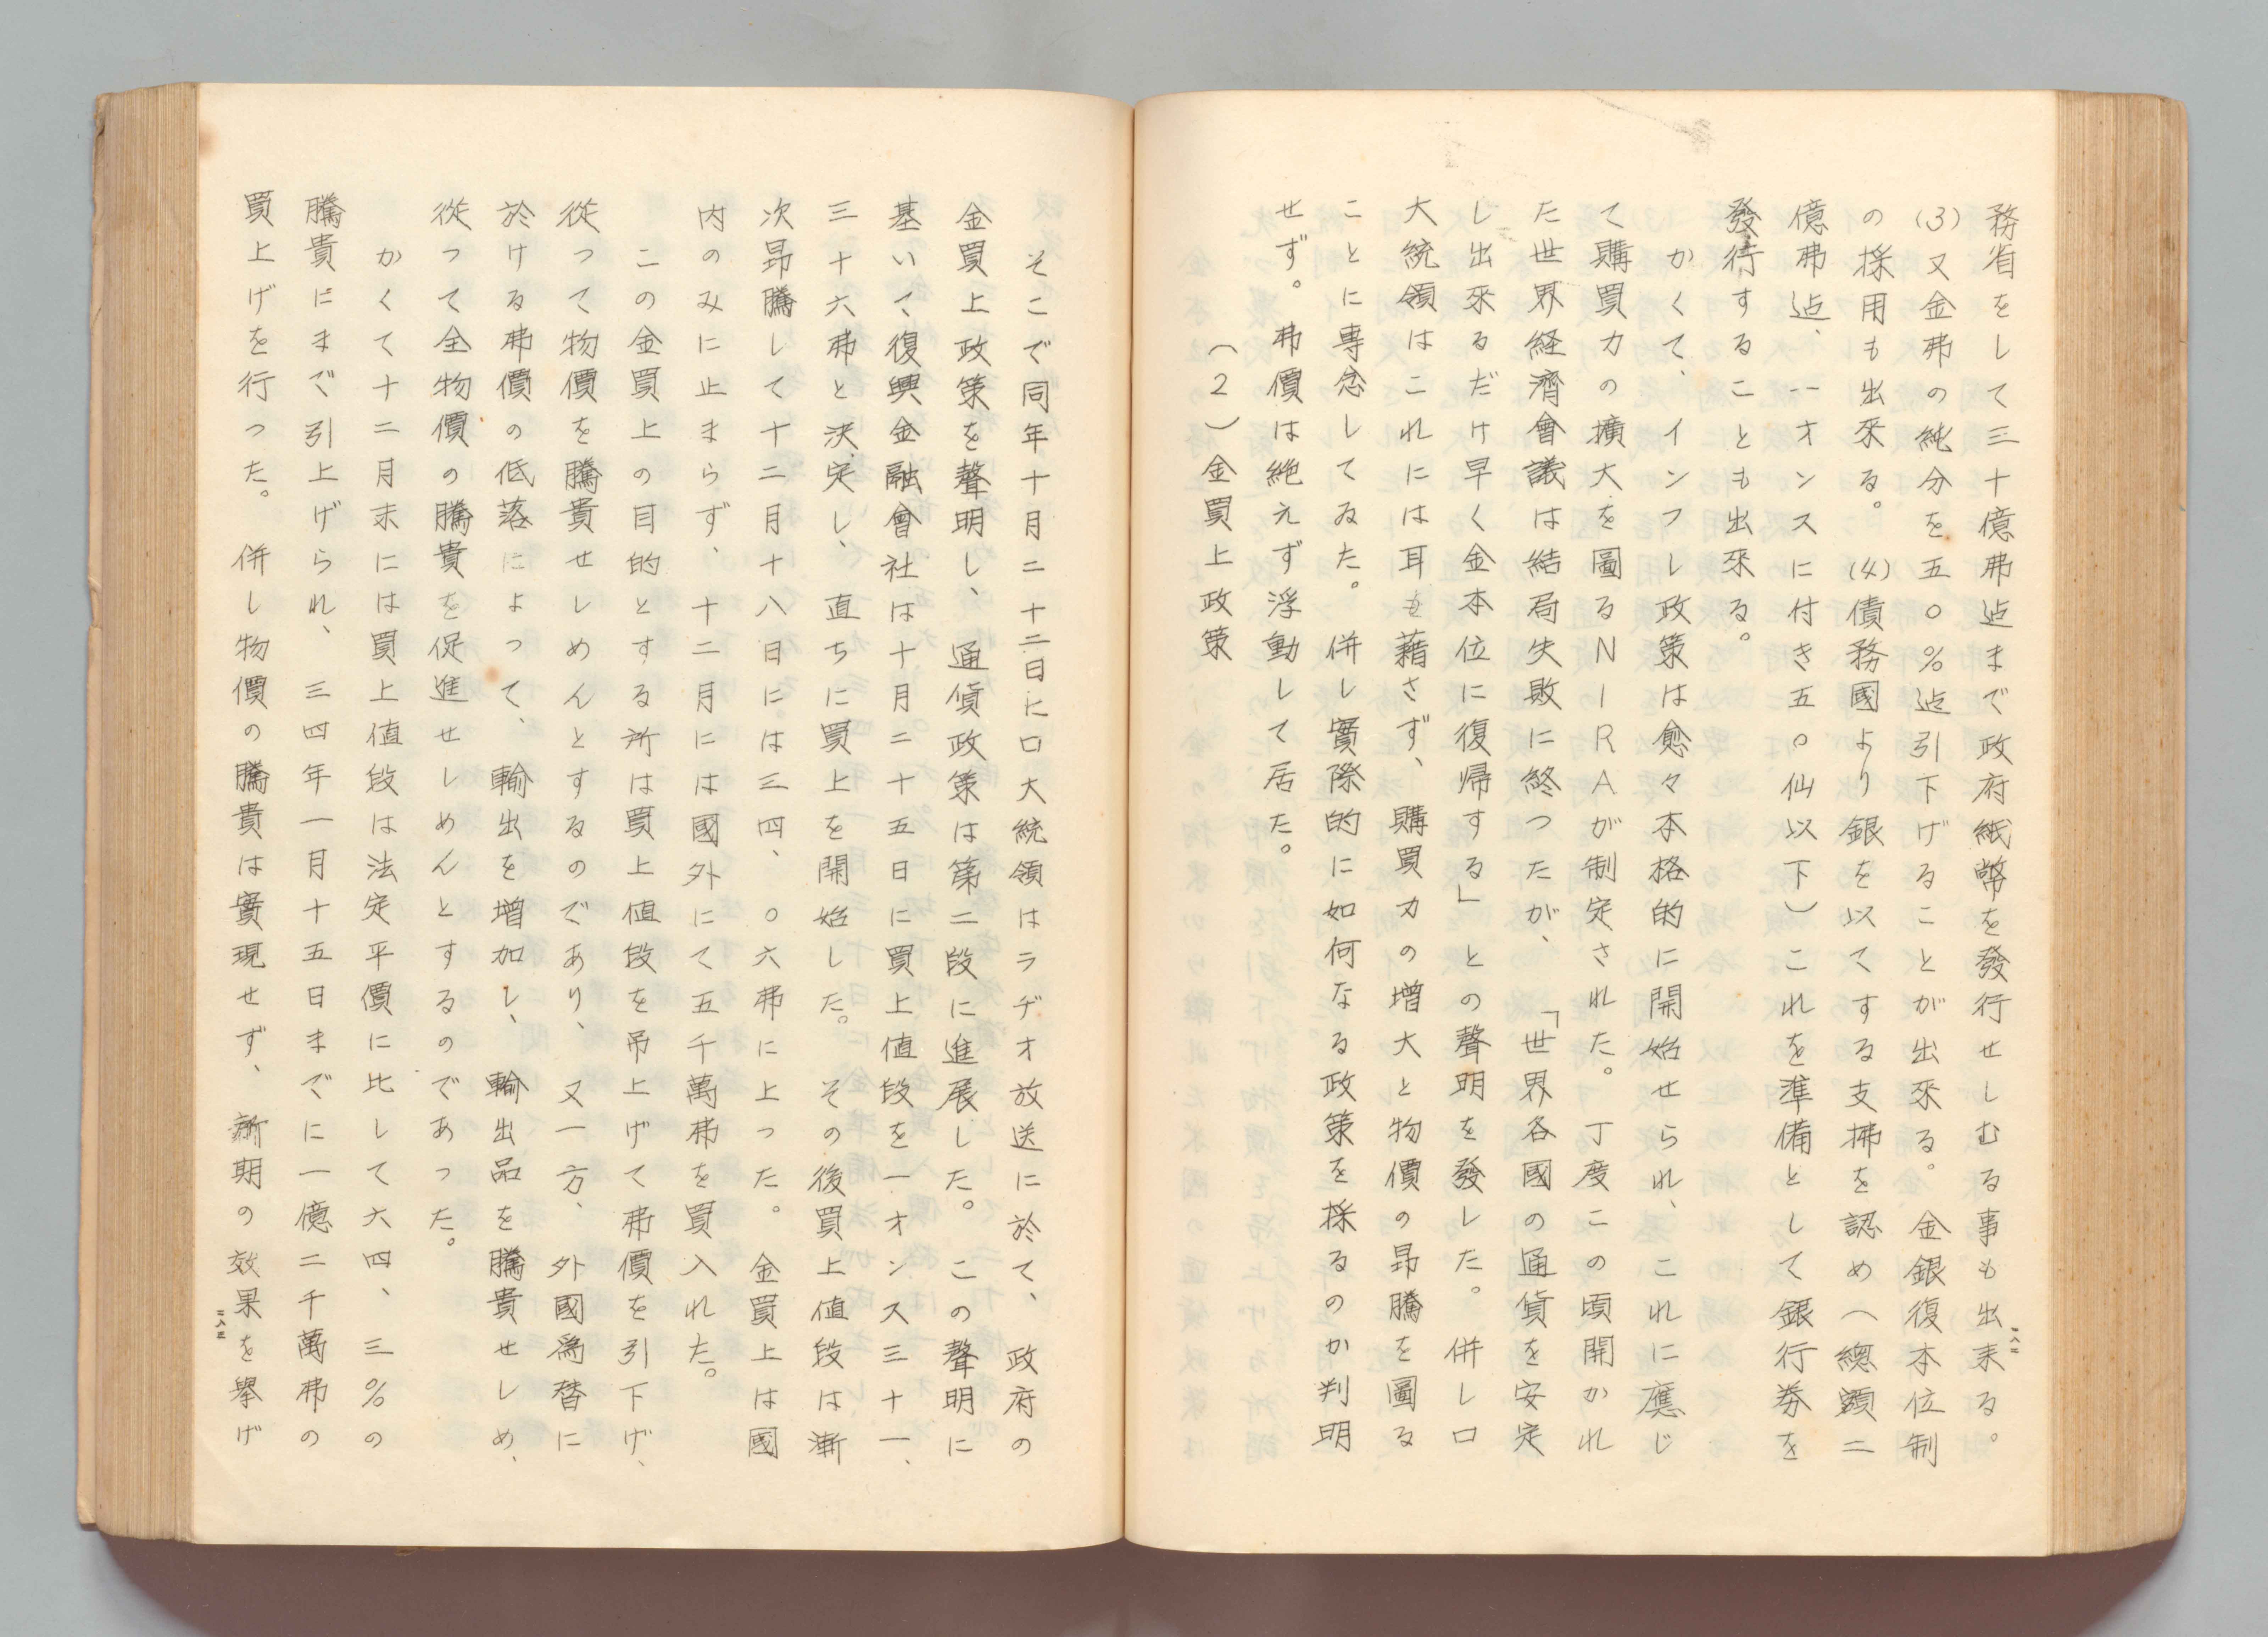 務省をして三十億弗迠まで政府紙幣を發行せしむる事も出来る。
(3)又金弗の純分を五〇%迠引下げることが出來る。金銀復本位制
の採用も出來る。(4)債務國より銀を以てする支拂を認め(總額二
億弗迠、一オンスに付き五〇仙以下)これを準備として銀行券を
發行することも出來る。
かくて、インフレ政策は愈々本格的に開始せられ、これに應じ
て購買力の擴大を圖るNIRAが制定された。丁度この頃開かれ
た世界経濟會議は結局失敗に終つたが、「世界各國の通貨を安定
し出來るだけ早く金本位に復帰する」との聲明を發した。併しロ
大統領はこれには耳を藉さず、購買力の増大と物價の昻騰を圖る
ことに專念してゐた。併し實際的に如何なる政策を採るのか判明
せず。弗價は絶えず浮動して居た。
(2)金買上政策
二八二
そこで同年十月二十二日にロ大統領はラヂオ放送に於て、政府の
金買上政策を聲明し、通貨政策は第二段に進展した。この聲明に
基いて復興金融會社は十月二十五日に買上値段を一オンス三十一、
三十六弗と決定し、直ちに買上を開始した。その後買上値段は漸
次昻騰して十二月十八日には三四、〇六弗に上った。金買上は國
内のみに止まらず、十二月には國外にて五千萬弗を買入れた。
この金買上の目的とする所は買上値段を吊上げて弗價を引下げ、
從って物價を騰貴せしめんとするのであり、又一方、外國為替に
於ける弗價の低落によって、輸出を増加し、輸出品を騰貴せしめ、
從って全物價の騰貴を促進せしめんとするのであった。
かくて十二月末には買上値段は法定平價に比して六四、三%の
騰貴にまで引上げられ、三四年一月十五日までに一億二千萬弗の
買上げを行った。併し物價の騰貴は實現せず、所期の效果を擧げ
二八三